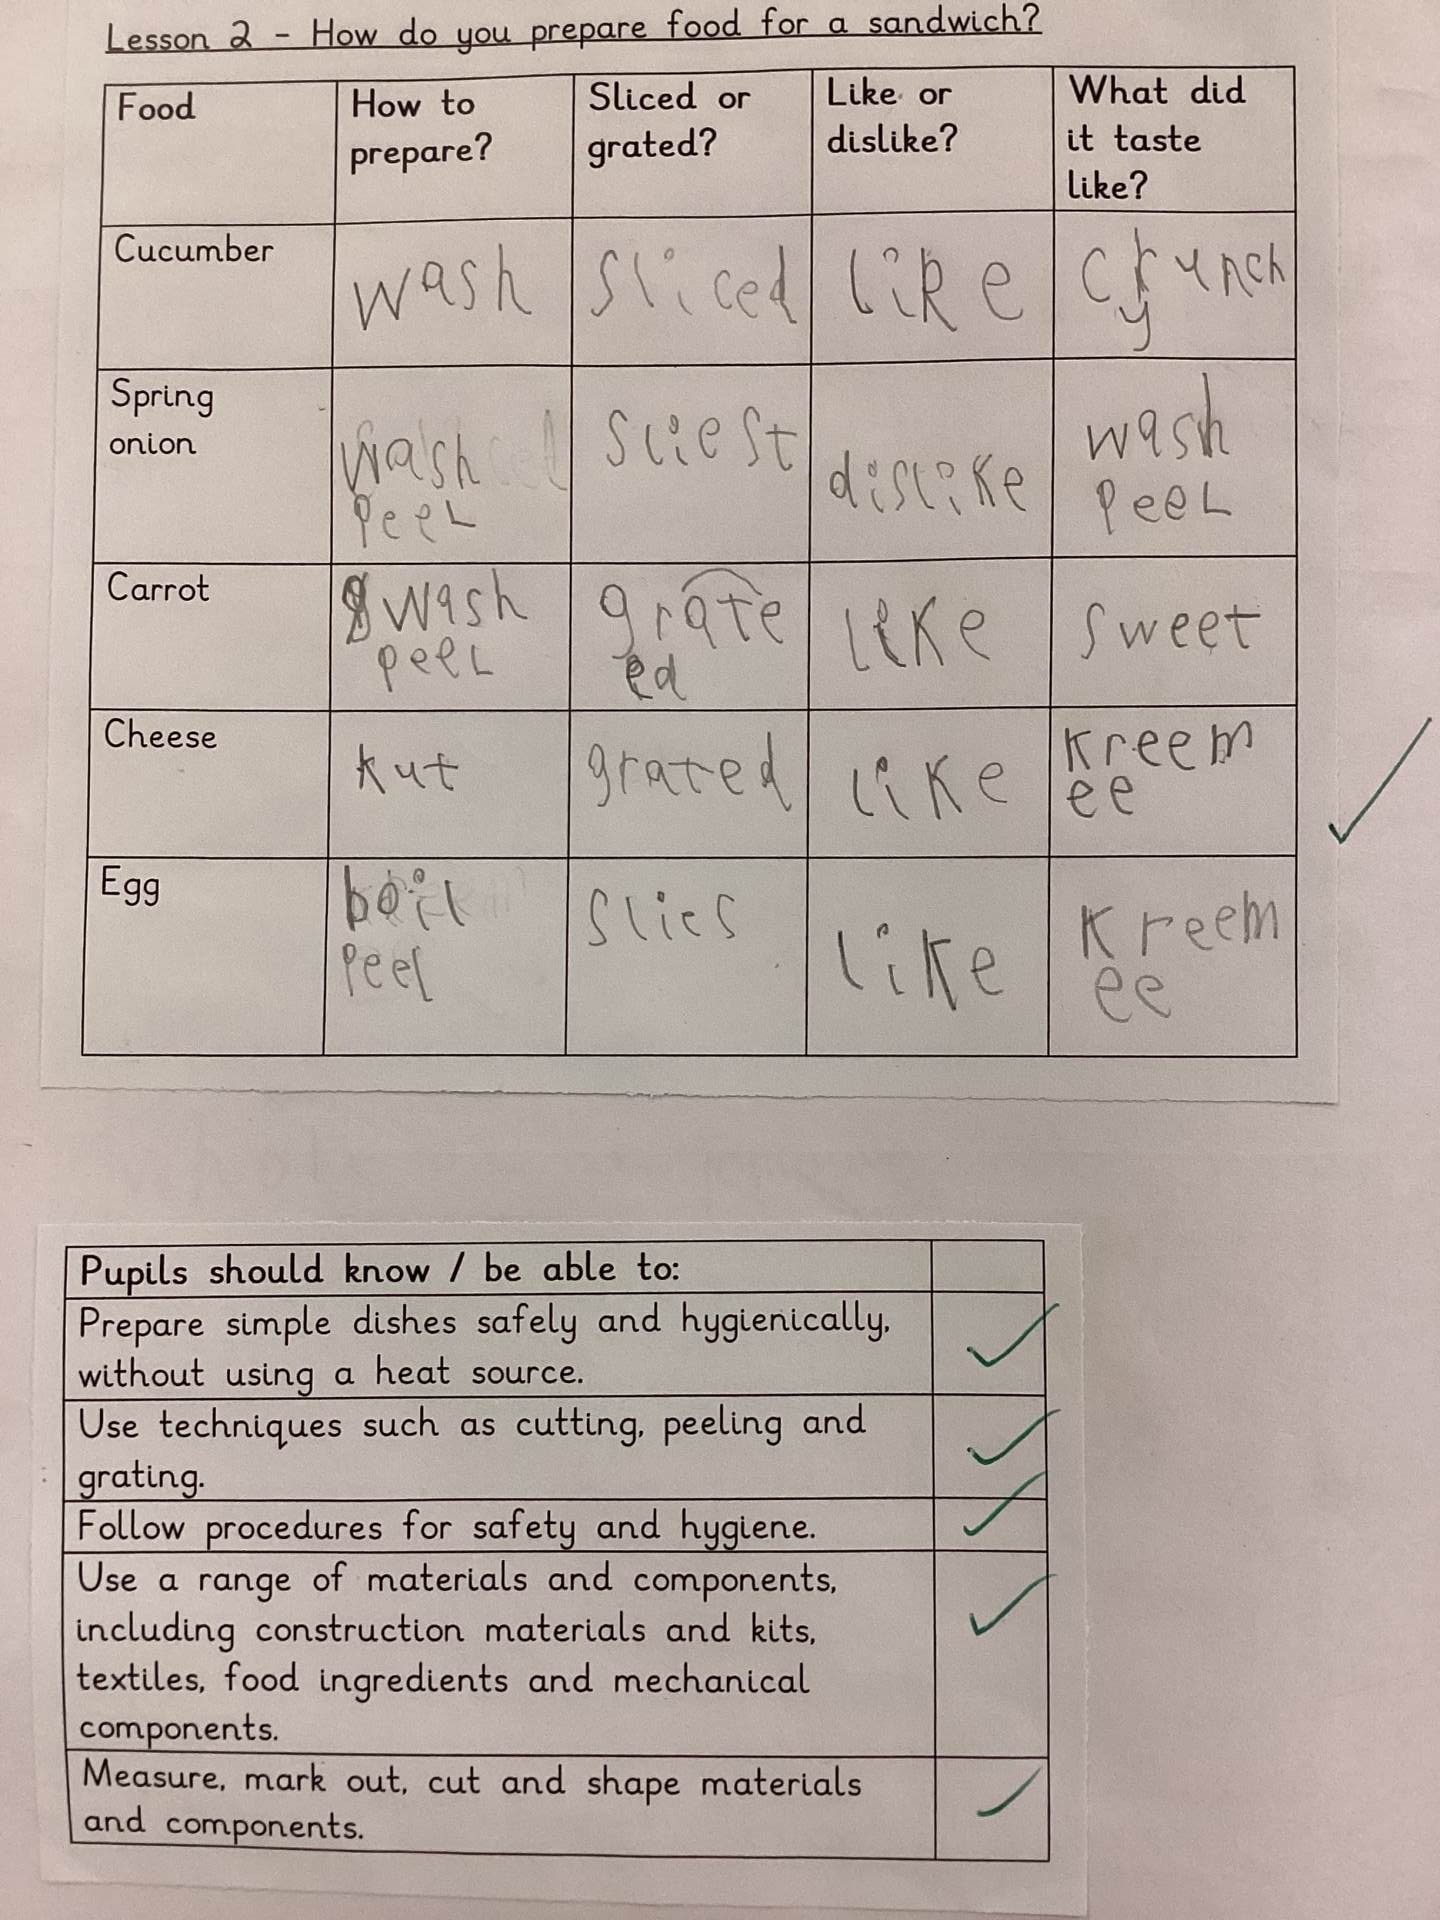 Lesson 2 - How do you prepare food for a sandwich?
Food How to prepare? Sliced or grated? Like or dislike? What did it taste like?
Cucumber wash sliced like crunch y
Spring onion wash peel sliest dislike wash peel
Carrot wash peel grate ed like sweet
Cheese kut grated like kreem ee
Egg boil peel slies like kreem ee
Pupils should know / be able to:
Prepare simple dishes safely and hygienically,
without using a heat source.
Use techniques such as cutting, peeling and
grating.
Follow procedures for safety and hygiene.
Use a range of materials and components,
including construction materials and kits,
textiles, food ingredients and mechanical
components.
Measure, mark out, cut and shape materials
and components.